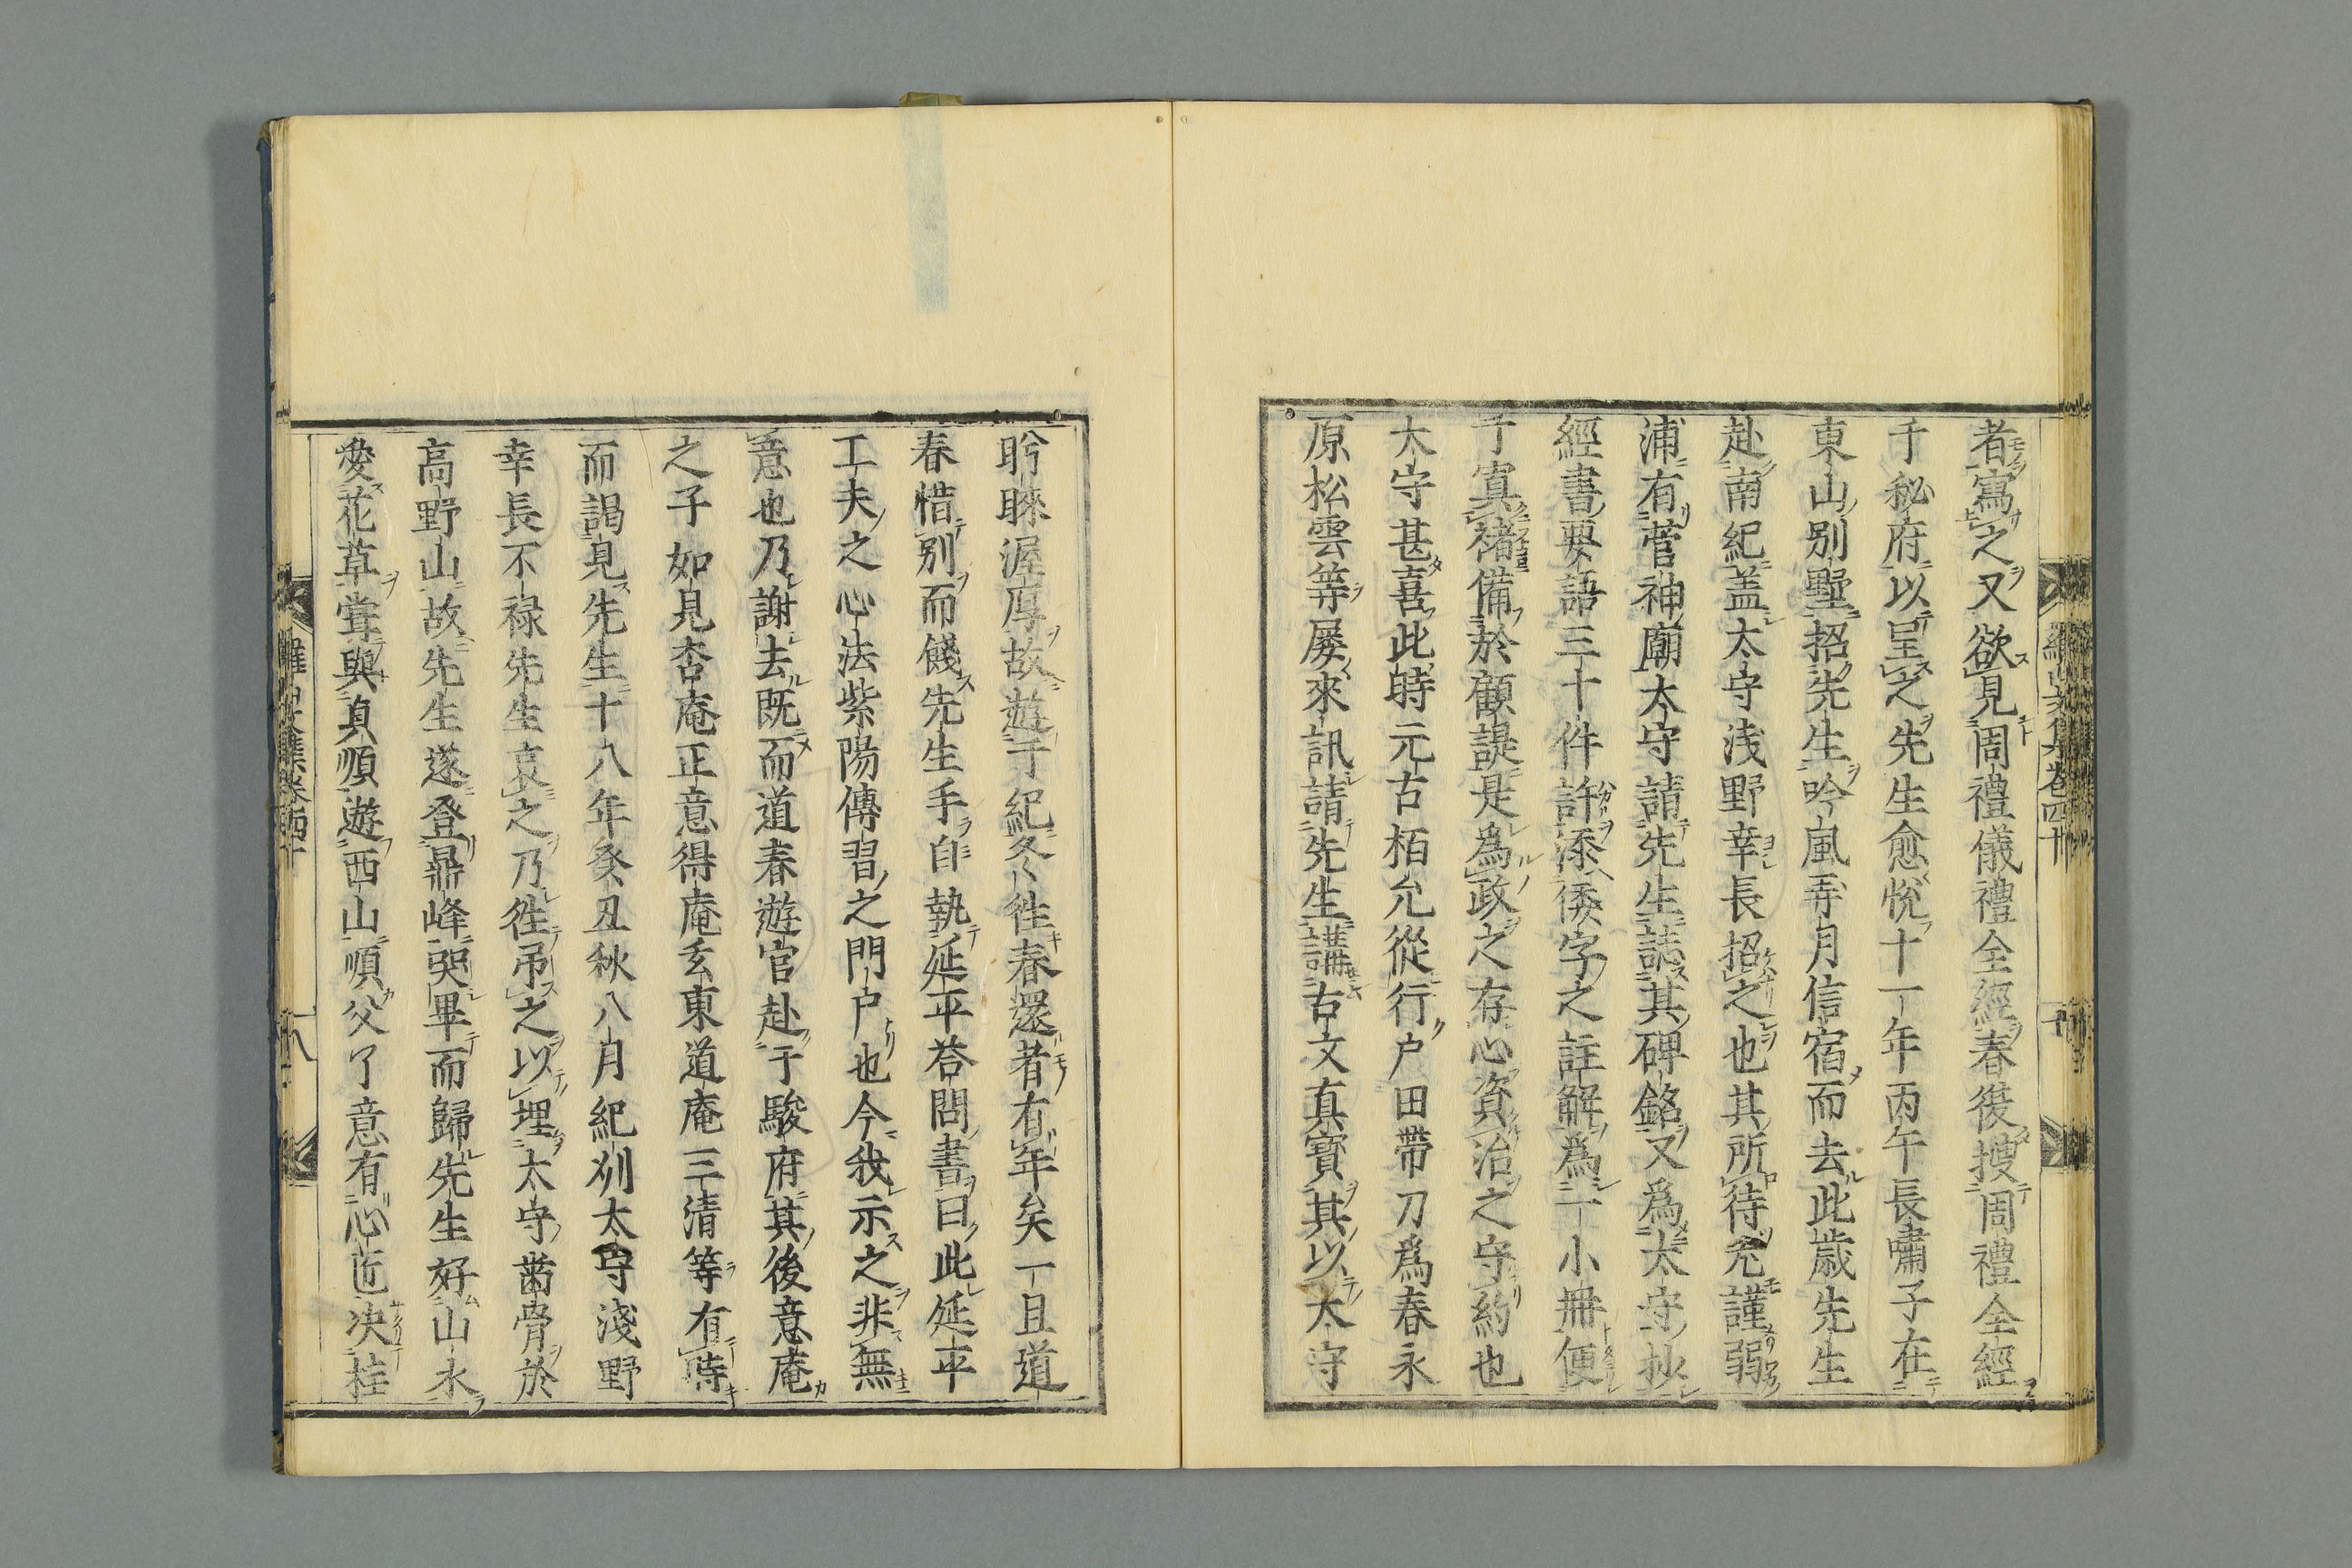 者寫之又欲見周禮儀禮全經春後搜周禮全經
于秘府以呈之先生愈悅十一年丙午長嘯子在
東山別墅招先生吟風弄月信宿而去此歲先生
赴南紀盖太守浅野幸長招之也其所待尤謹弱
浦有菅神廟太守請先生誌其碑銘又爲太守抄
經書要語三十件許添倭字之註解爲一小冊便
于寘褚備於顧諟是爲政之存心資治之守約也
太守甚喜此時元古栢允從行户田帶刀爲春永
原松雲等屡來訊請先生講古文真寶其以太守
盻睞渥厚故遊于紀冬徃春還者有年矣一旦道
春惜別而餞先生手自執延平荅問書曰此延平
工夫之心法紫陽傳習之門户也今我示之非無
意也乃謝去既而道春遊宦赴于駿府其後意庵
之子如見杏庵正意得庵玄東道庵三清等有時
而謁見先生十八年癸丑秋八月紀刕太守淺野
幸長不禄先生哀之乃徃弔之以埋太守齒骨於
高野山故先生遂登鼎峰哭畢而歸先生好山水
愛花草甞與貞順遊西山順父了意有心匠决桂
羅山文集卷四十
八